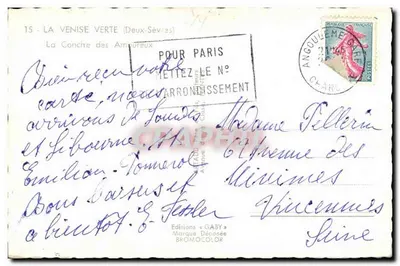 15 - LA VENISE VERTE (Deux-Sèvres)
La Conche des Amoureux
POUR PARIS
METTEZ LE Nº
D'ARRONDISSEMENT
ANGOULEME GARE
Bien reçu votre
carte, nous
arrivons de Lourdes
et Libourne, St
Emilion,
Bons baisers et
a bientôt. E.
Madame Pellerin
6 Avenue des
Minimes
Vincennes
Seine
Editions "GABY"
Marque Déposée
BROMOCOLOR